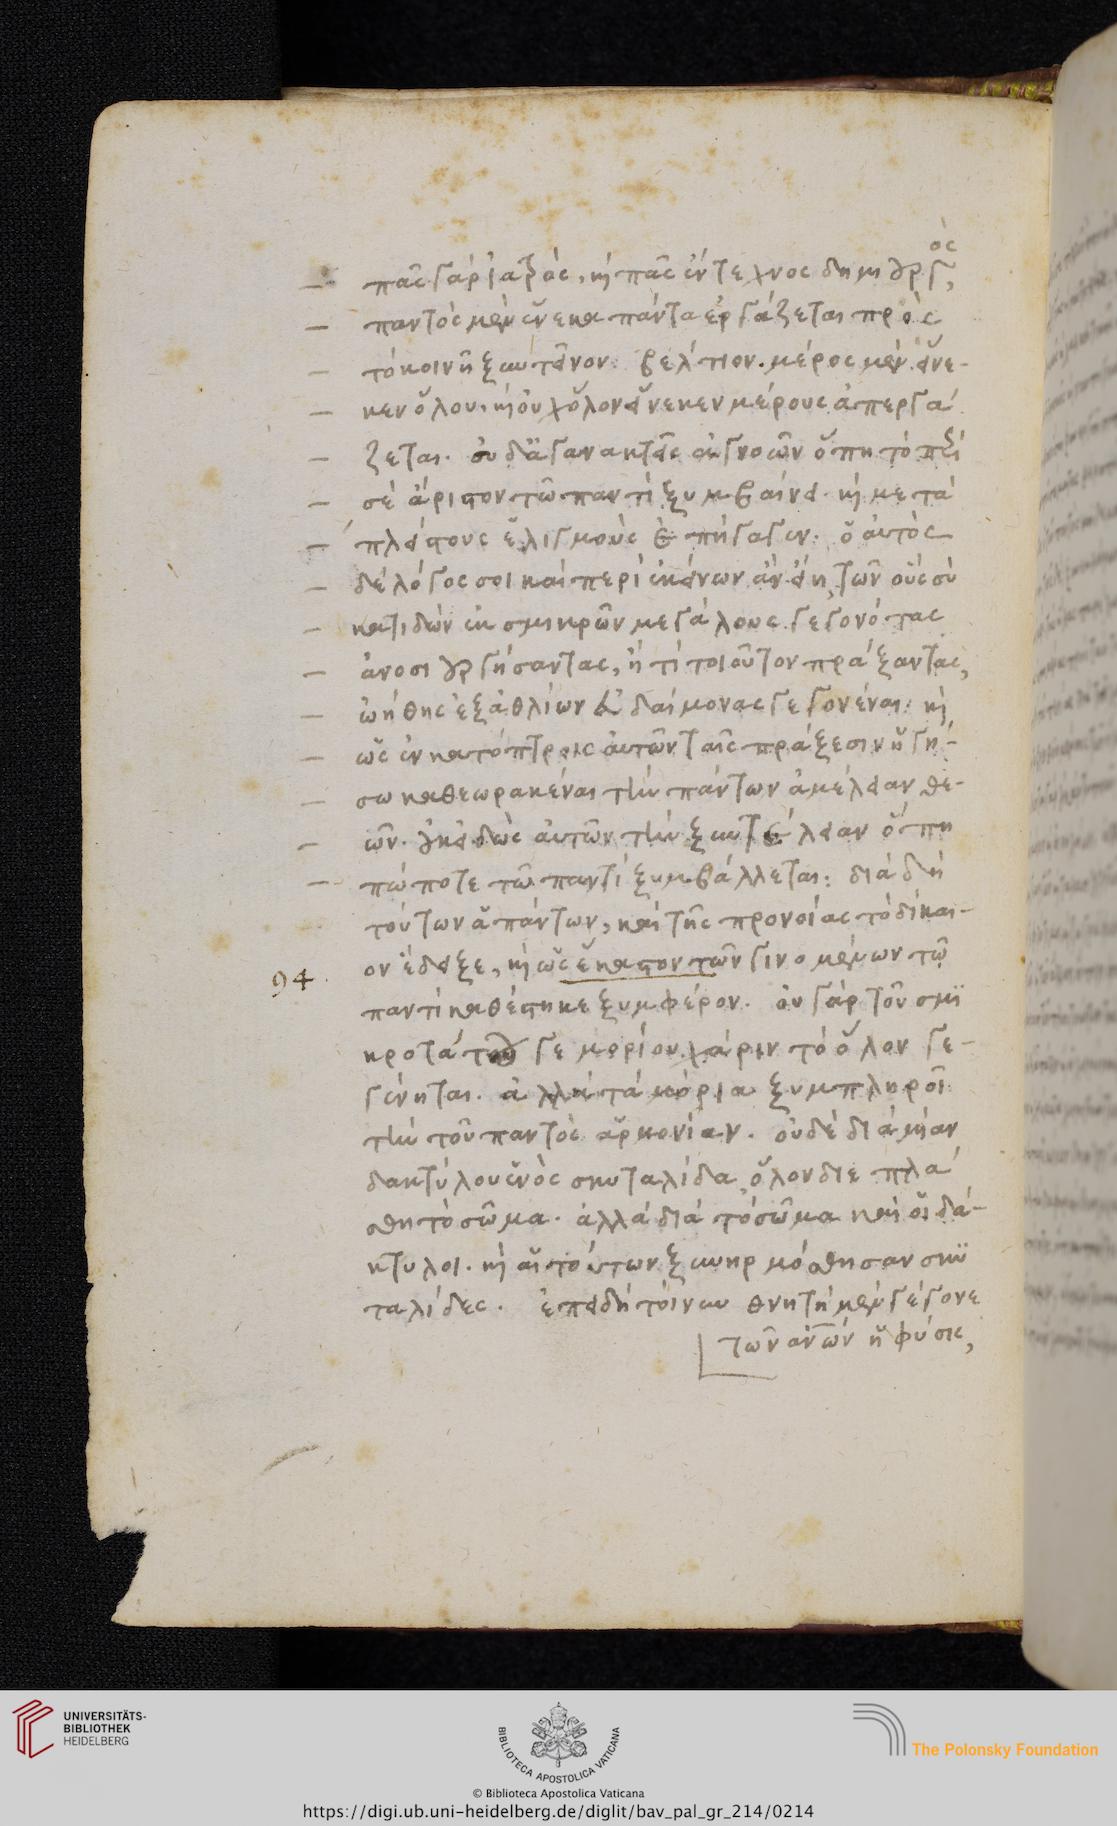 πᾶς γὰρ ἰατρὸς, καὶ πᾶς ἔντεχνος δημιουργὸς,
παντὸς μὲν ἕνεκα πάντα ἐργάζεται πρὸς
τὸ κοινῆ ξυντεῖνον βέλτιον. μέρος μὲν ἕνε-
κεν ὅλου. καὶ οὐχ ὅλον εἵνεκεν μέρους ἀπεργά
ζεται. σὺ δ' ἀγανακτεῖς ἀγνοῶν ὅπη τὸ περὶ
σὲ ἄριστον τῶ παντὶ ξυμβαίνει. καὶ μετὰ
πλείστους ἑλιγμοὺς ἐπήγαγεν. ὁ αὐτὸς
δὲ λόγος σοι καὶ περὶ ἐκείνων ἂν εἴη τῶν οὓς σὺ
κατιδὼν ἐκ σμικρῶν μεγάλους γεγονότας
ἀνοσιουργήσαντας, ἤ τι τοιοῦτον πράξαντας,
ὠήθης ἐξ ἀθλίων εὐδαίμονας γεγονέναι: καὶ
ὡς ἐν κατόπτροις αὐτῶν ταῖς πράξεσιν ἡγή-
σω καθεωρακέναι τὴν πάντων ἀμέλειαν θε-
ῶν. οὐκ εἰδὼς αὐτῶν τὴν ξυντέλειαν ὅπη
πώποτε τῶ παντὶ ξυμβάλλεται: διὰ δὴ
τούτων ἁπάντων, καὶ τῆς προνοίας τὸ δίκαι-
94 ον ἔδειξε, καὶ ὡς ἕκαστον τῶν γινομένων τῶ
παντὶ καθέστηκε ξυμφέρον. οὐ γὰρ τοῦ σμι
κροτάτου γε μορίου χάριν τὸ ὅλον γε-
γένηται. ἀλλὰ τὰ μόρια ξυμπληροῖ
τὴν τοῦ παντὸς ἁρμονίαν. οὐδὲ διὰ μίαν
δακτύλου ἑνὸς σκυταλίδα, ὅλον διεπλά
σθη τὸ σῶμα. ἀλλὰ διὰ τὸ σῶμα καὶ οἱ δά-
κτυλοι. καὶ αἱ τούτων ξυνηρμόσθησαν σκυ
ταλίδες. ἐπειδὴ τοίνυν θνητὴ μὲν γέγονε
τῶν ἀνῶν ἡ φύσις,
UNIVERSITÄTS-
BIBLIOTHEK
HEIDELBERG
BIBLIOTECA APOSTOLICA VATICANA
The Polonsky Foundation
© Biblioteca Apostolica Vaticana
https://digi.ub.uni-heidelberg.de/diglit/bav_pal_gr_214/0214